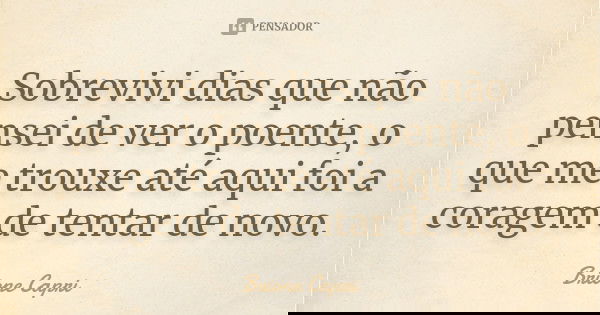 PENSADOR
Sobrevivi dias que não
pensei de ver o poente, o
que me trouxe até aqui foi a
coragem de tentar de novo.
Brione Capri